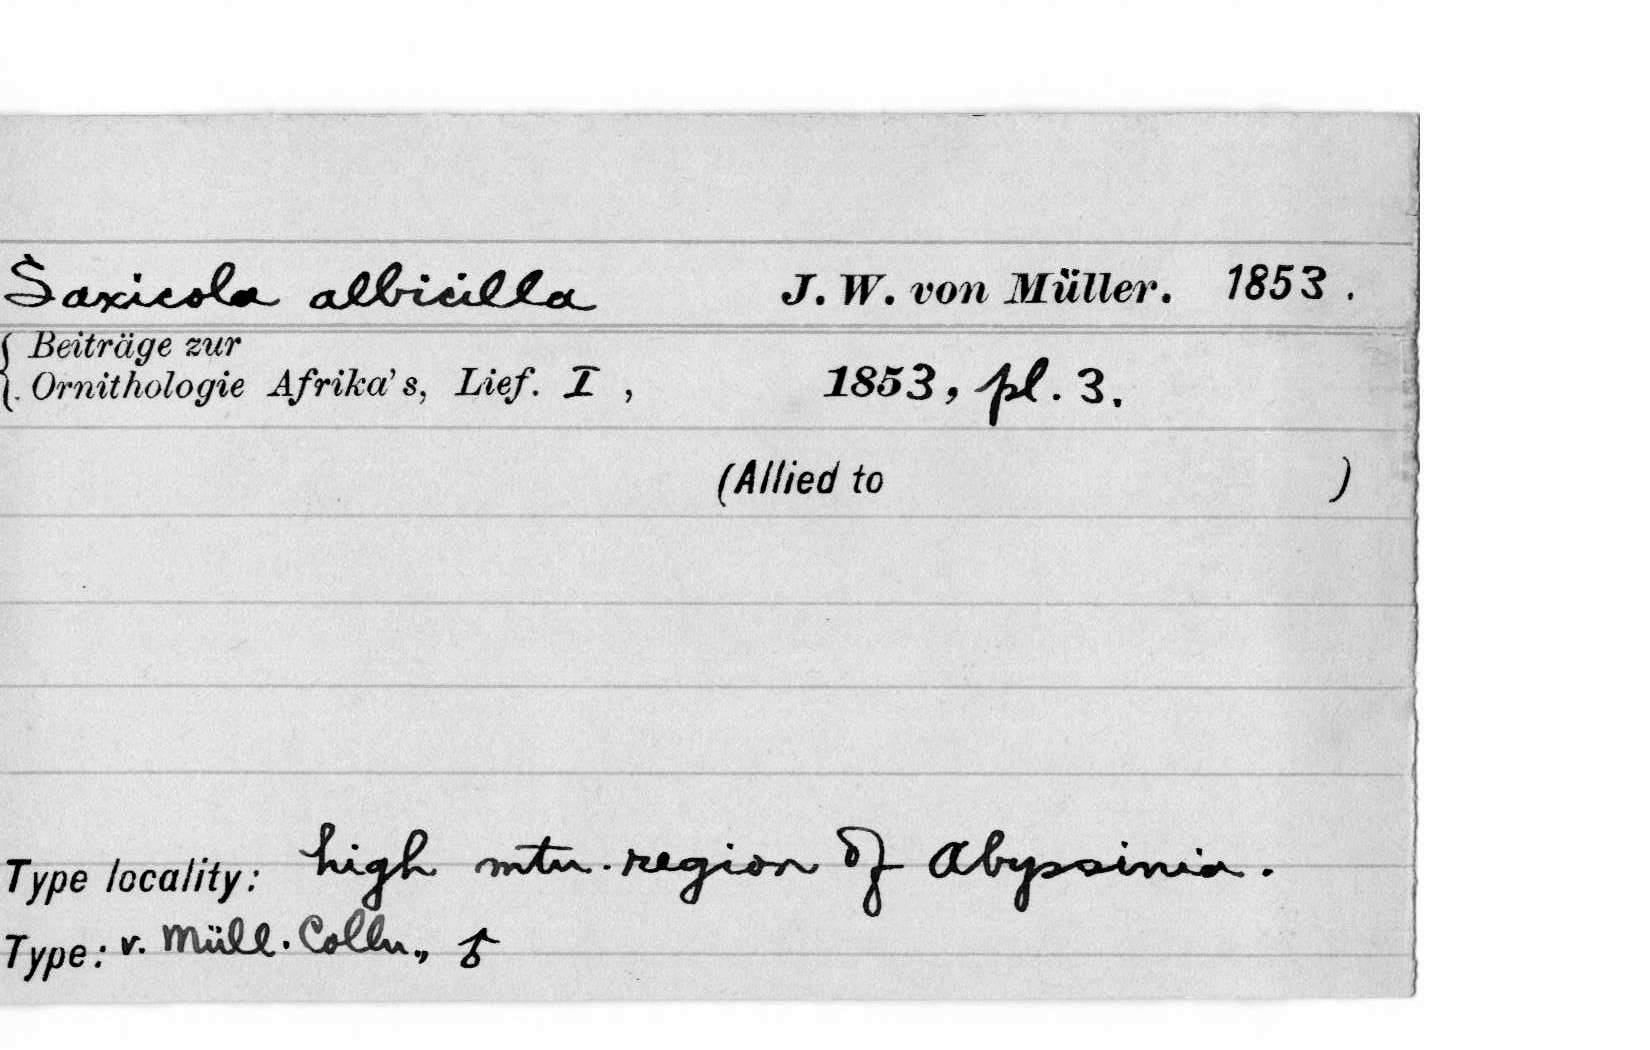 Saxicola albicilla J. W. von Müller. 1853.
{ Beiträge zur
Ornithologie Afrika's, Lief. I, 1853, pl. 3.
(Allied to )
Type locality: high mtn. region of Abyssinia.
Type: v. Müll. Colln., ♂